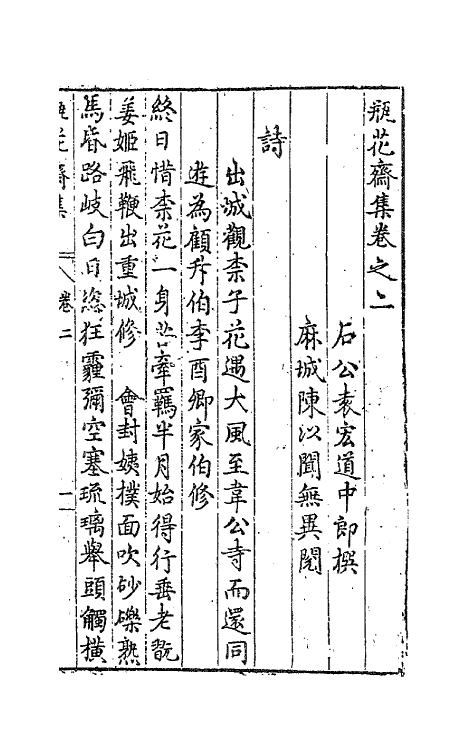 瓶花齋集卷之二
石公袁宏道中郎撰
麻城陳以聞無異閱
詩
出城觀柰子花遇大風至韋公寺而還同
遊為顧升伯李酉卿家伯修
終日惜柰花一身苦牽羈半月始得行垂老翫
姜姬飛鞭出重城修 會封姨撲面吹砂礫熟
馬昏路岐白日 狂霾彌空塞琉璃舉頭觸橫
瓶花齋集 卷二 一